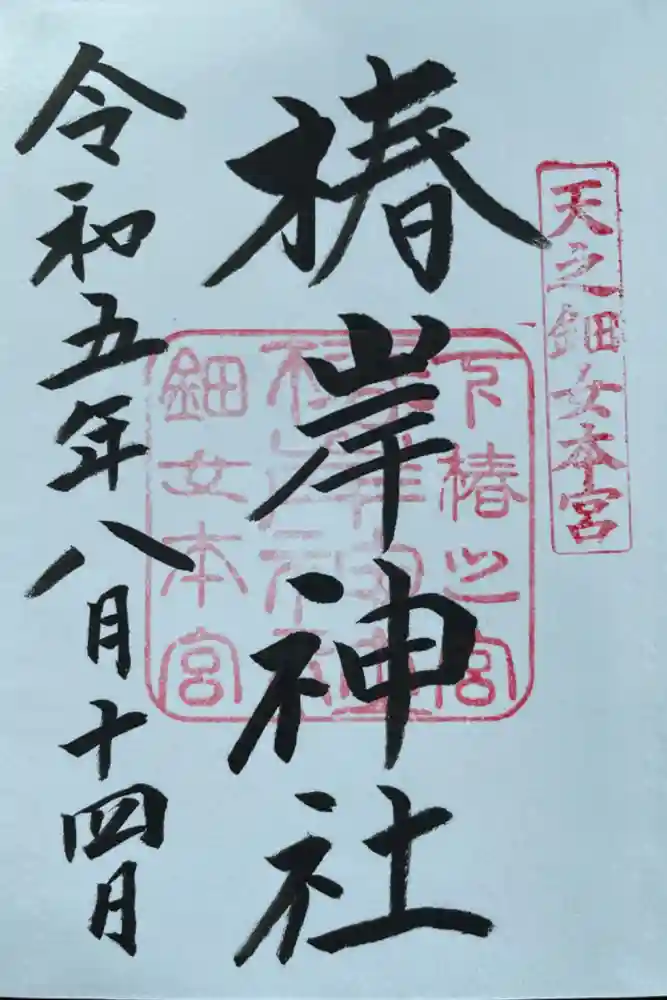 天之鈿女本宮
椿岸神社
下椿之宮
鈿女本宮
令和五年八月十四日